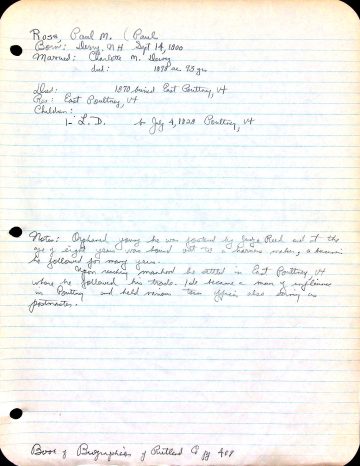 Ross, Paul M. (Paul
Born: Derry, NH Sept 14, 1800
Married: Charlotte M. Dewey
died: 1878 ae. 75 yr.
Died: 1870 buried East Poultney, Vt
Res: East Poultney, Vt
Children:
1- L.D. b July 4, 1828 Poultney, Vt
Notes: Orphaned young he was by Reed and at the
age of eight years was bound out to a harness maker, a business
he followed for many years.
Upon reaching manhood he settled in East Poultney, Vt
where he followed his trade. He became a man of influence
in Poultney and held various town offices also serving as
postmaster.
Book of Biographies of Rutland Co pg 409